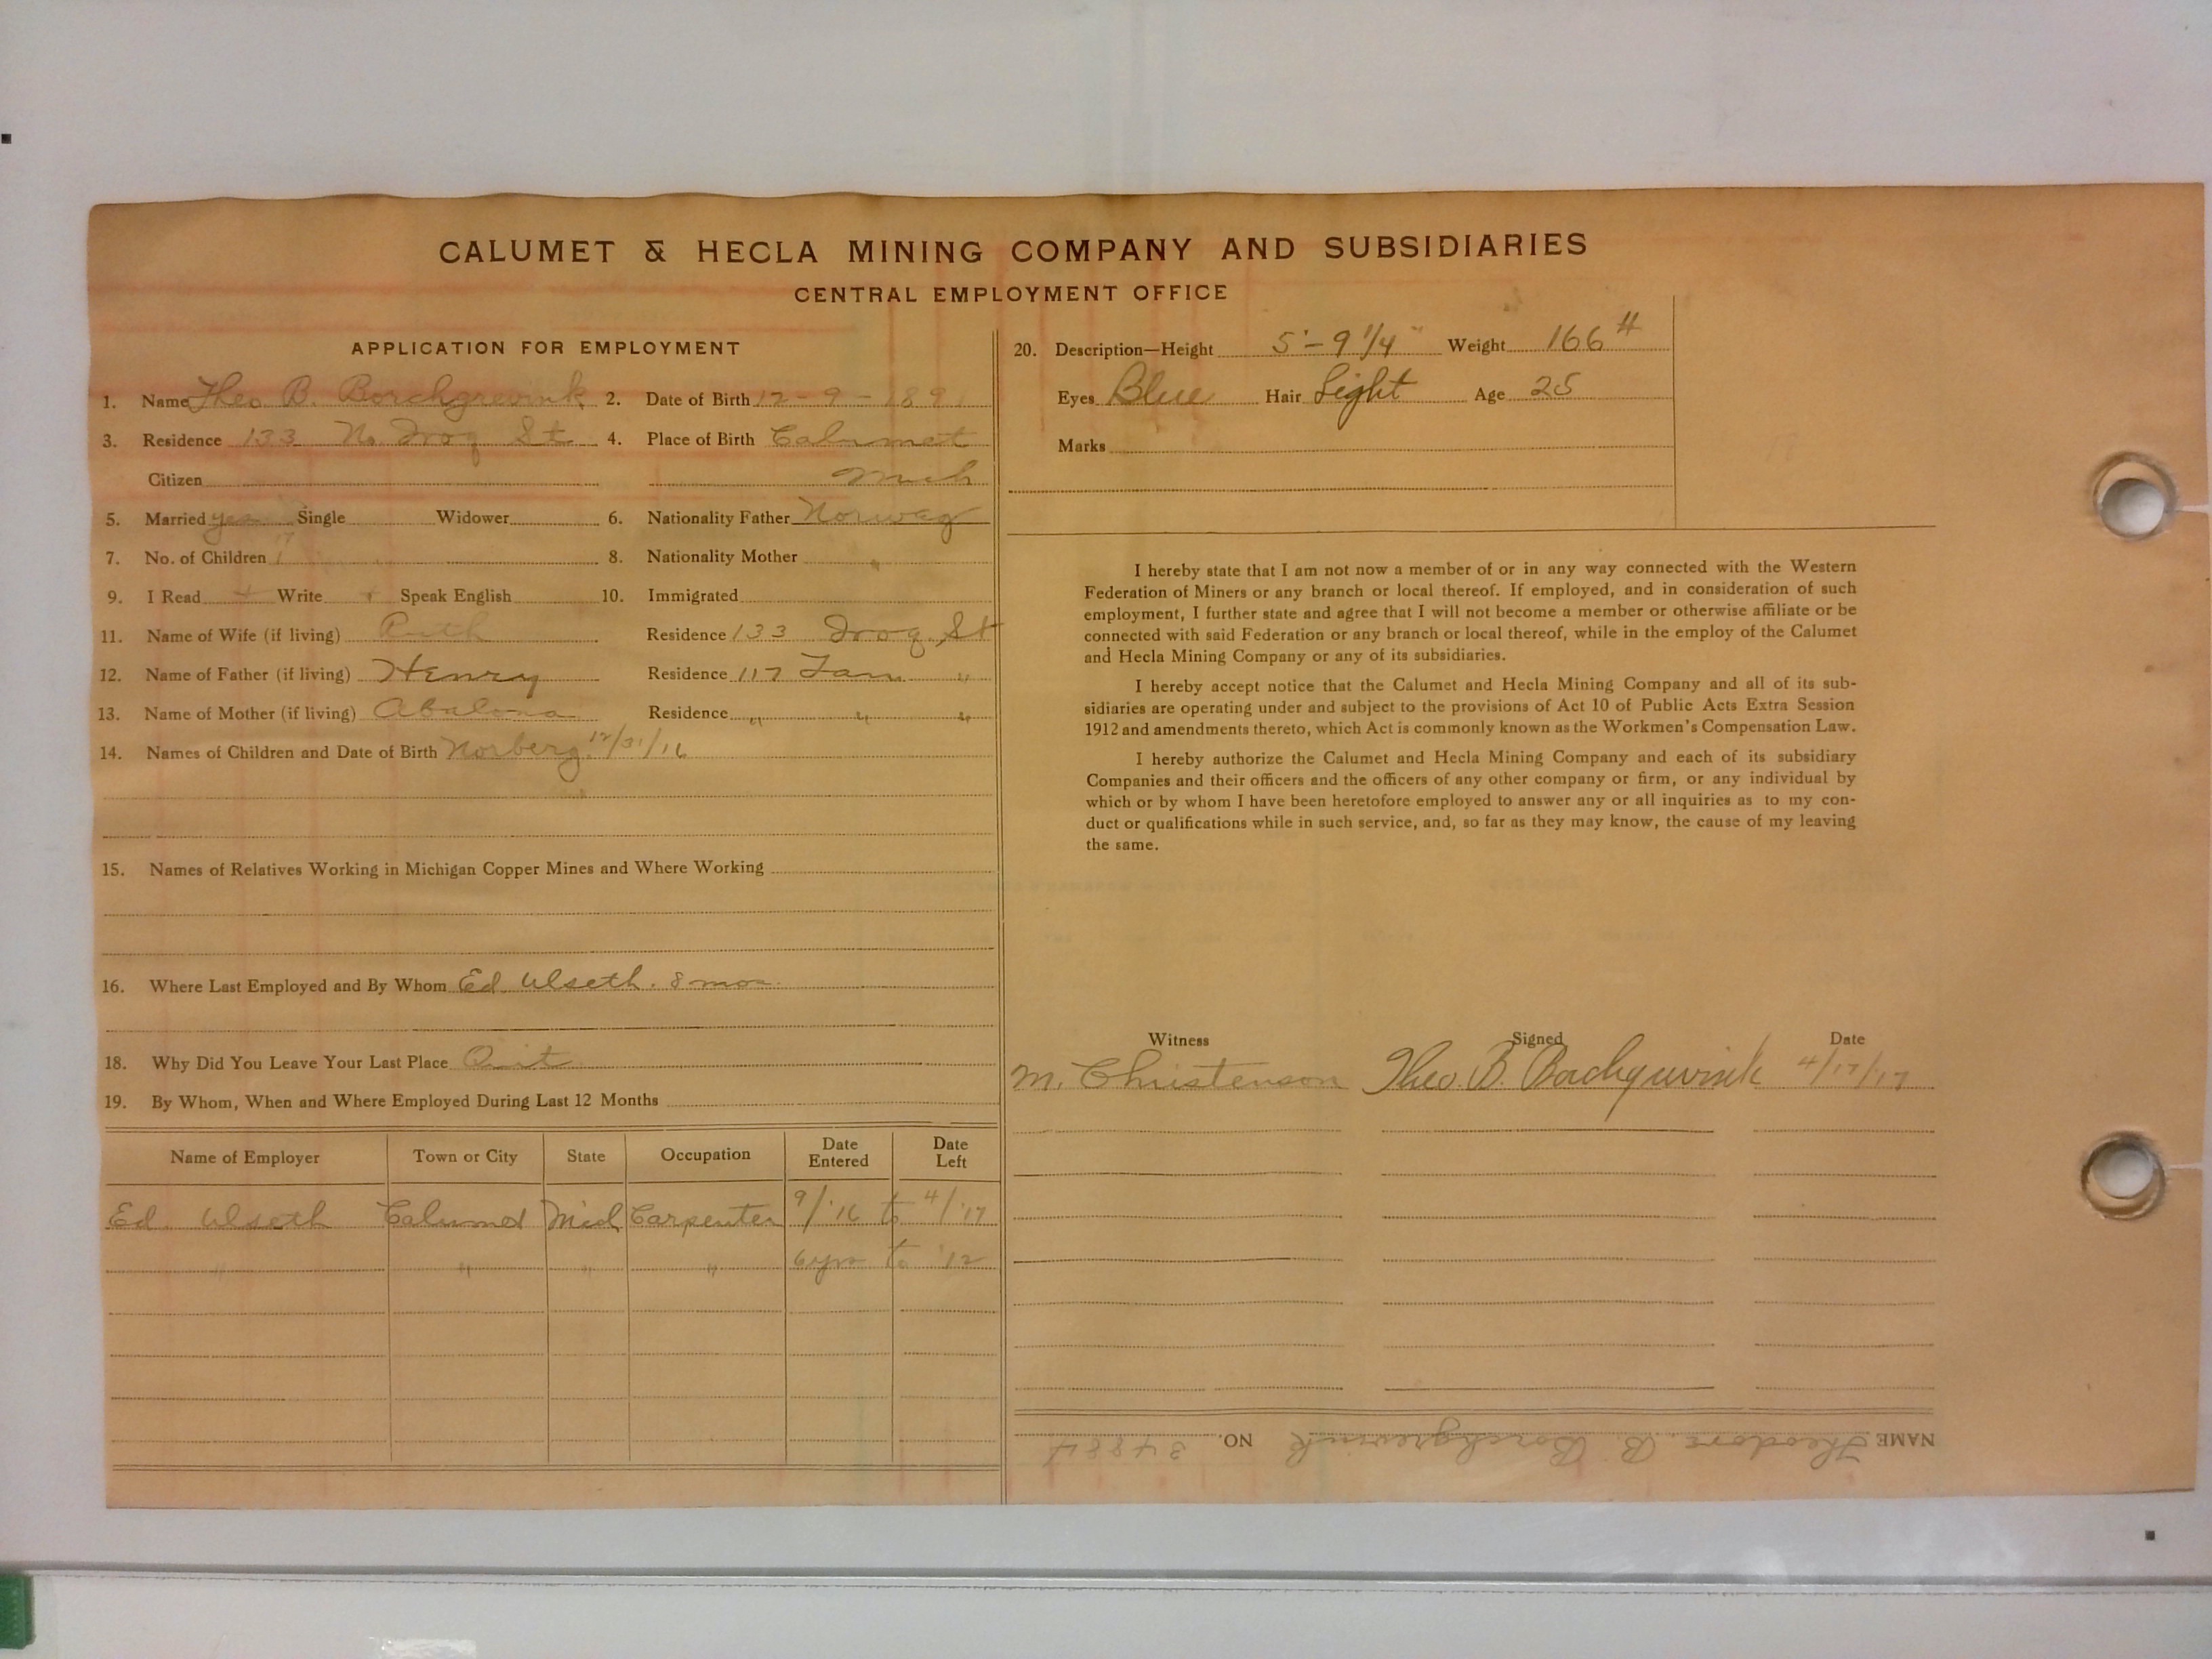 CALUMET & HECLA MINING COMPANY AND SUBSIDIARIES
CENTRAL EMPLOYMENT OFFICE
APPLICATION FOR EMPLOYMENT
1. Name Theo B. Borchgrevink 2. Date of Birth 12-9-1891
3. Residence 133 No. Iroq St. 4. Place of Birth Calumet
Citizen Mich
5. Married yes Single Widower 6. Nationality Father Norway
7. No. of Children 1 8. Nationality Mother "
9. I Read + Write + Speak English 10. Immigrated
11. Name of Wife (if living) Ruth Residence 133 Iroq. St
12. Name of Father (if living) Henry Residence 117 Tam. "
13. Name of Mother (if living) Residence " " "
14. Names of Children and Date of Birth Norberg 12/31/16
15. Names of Relatives Working in Michigan Copper Mines and Where Working
16. Where Last Employed and By Whom Ed. Ulseth. 8 mos.
18. Why Did You Leave Your Last Place Quit
19. By Whom, When and Where Employed During Last 12 Months
Name of Employer Town or City State Occupation Date Entered Date Left
Ed. Ulseth Calumet Mich Carpenter 9/'16 to 4/'17
" " " " 6 yrs to '12
20. Description—Height 5'-9 1/4" Weight 166 #
Eyes Blue Hair Light Age 25
Marks
I hereby state that I am not now a member of or in any way connected with the Western
Federation of Miners or any branch or local thereof. If employed, and in consideration of such
employment, I further state and agree that I will not become a member or otherwise affiliate or be
connected with said Federation or any branch or local thereof, while in the employ of the Calumet
and Hecla Mining Company or any of its subsidiaries.
I hereby accept notice that the Calumet and Hecla Mining Company and all of its sub-
sidiaries are operating under and subject to the provisions of Act 10 of Public Acts Extra Session
1912 and amendments thereto, which Act is commonly known as the Workmen's Compensation Law.
I hereby authorize the Calumet and Hecla Mining Company and each of its subsidiary
Companies and their officers and the officers of any other company or firm, or any individual by
which or by whom I have been heretofore employed to answer any or all inquiries as to my con-
duct or qualifications while in such service, and, so far as they may know, the cause of my leaving
the same.
Witness Signed Date
M. Christenson Theo. B. Borchgrevink 4/17/17
NAME Theodore B. Borchgrevink NO. 34884